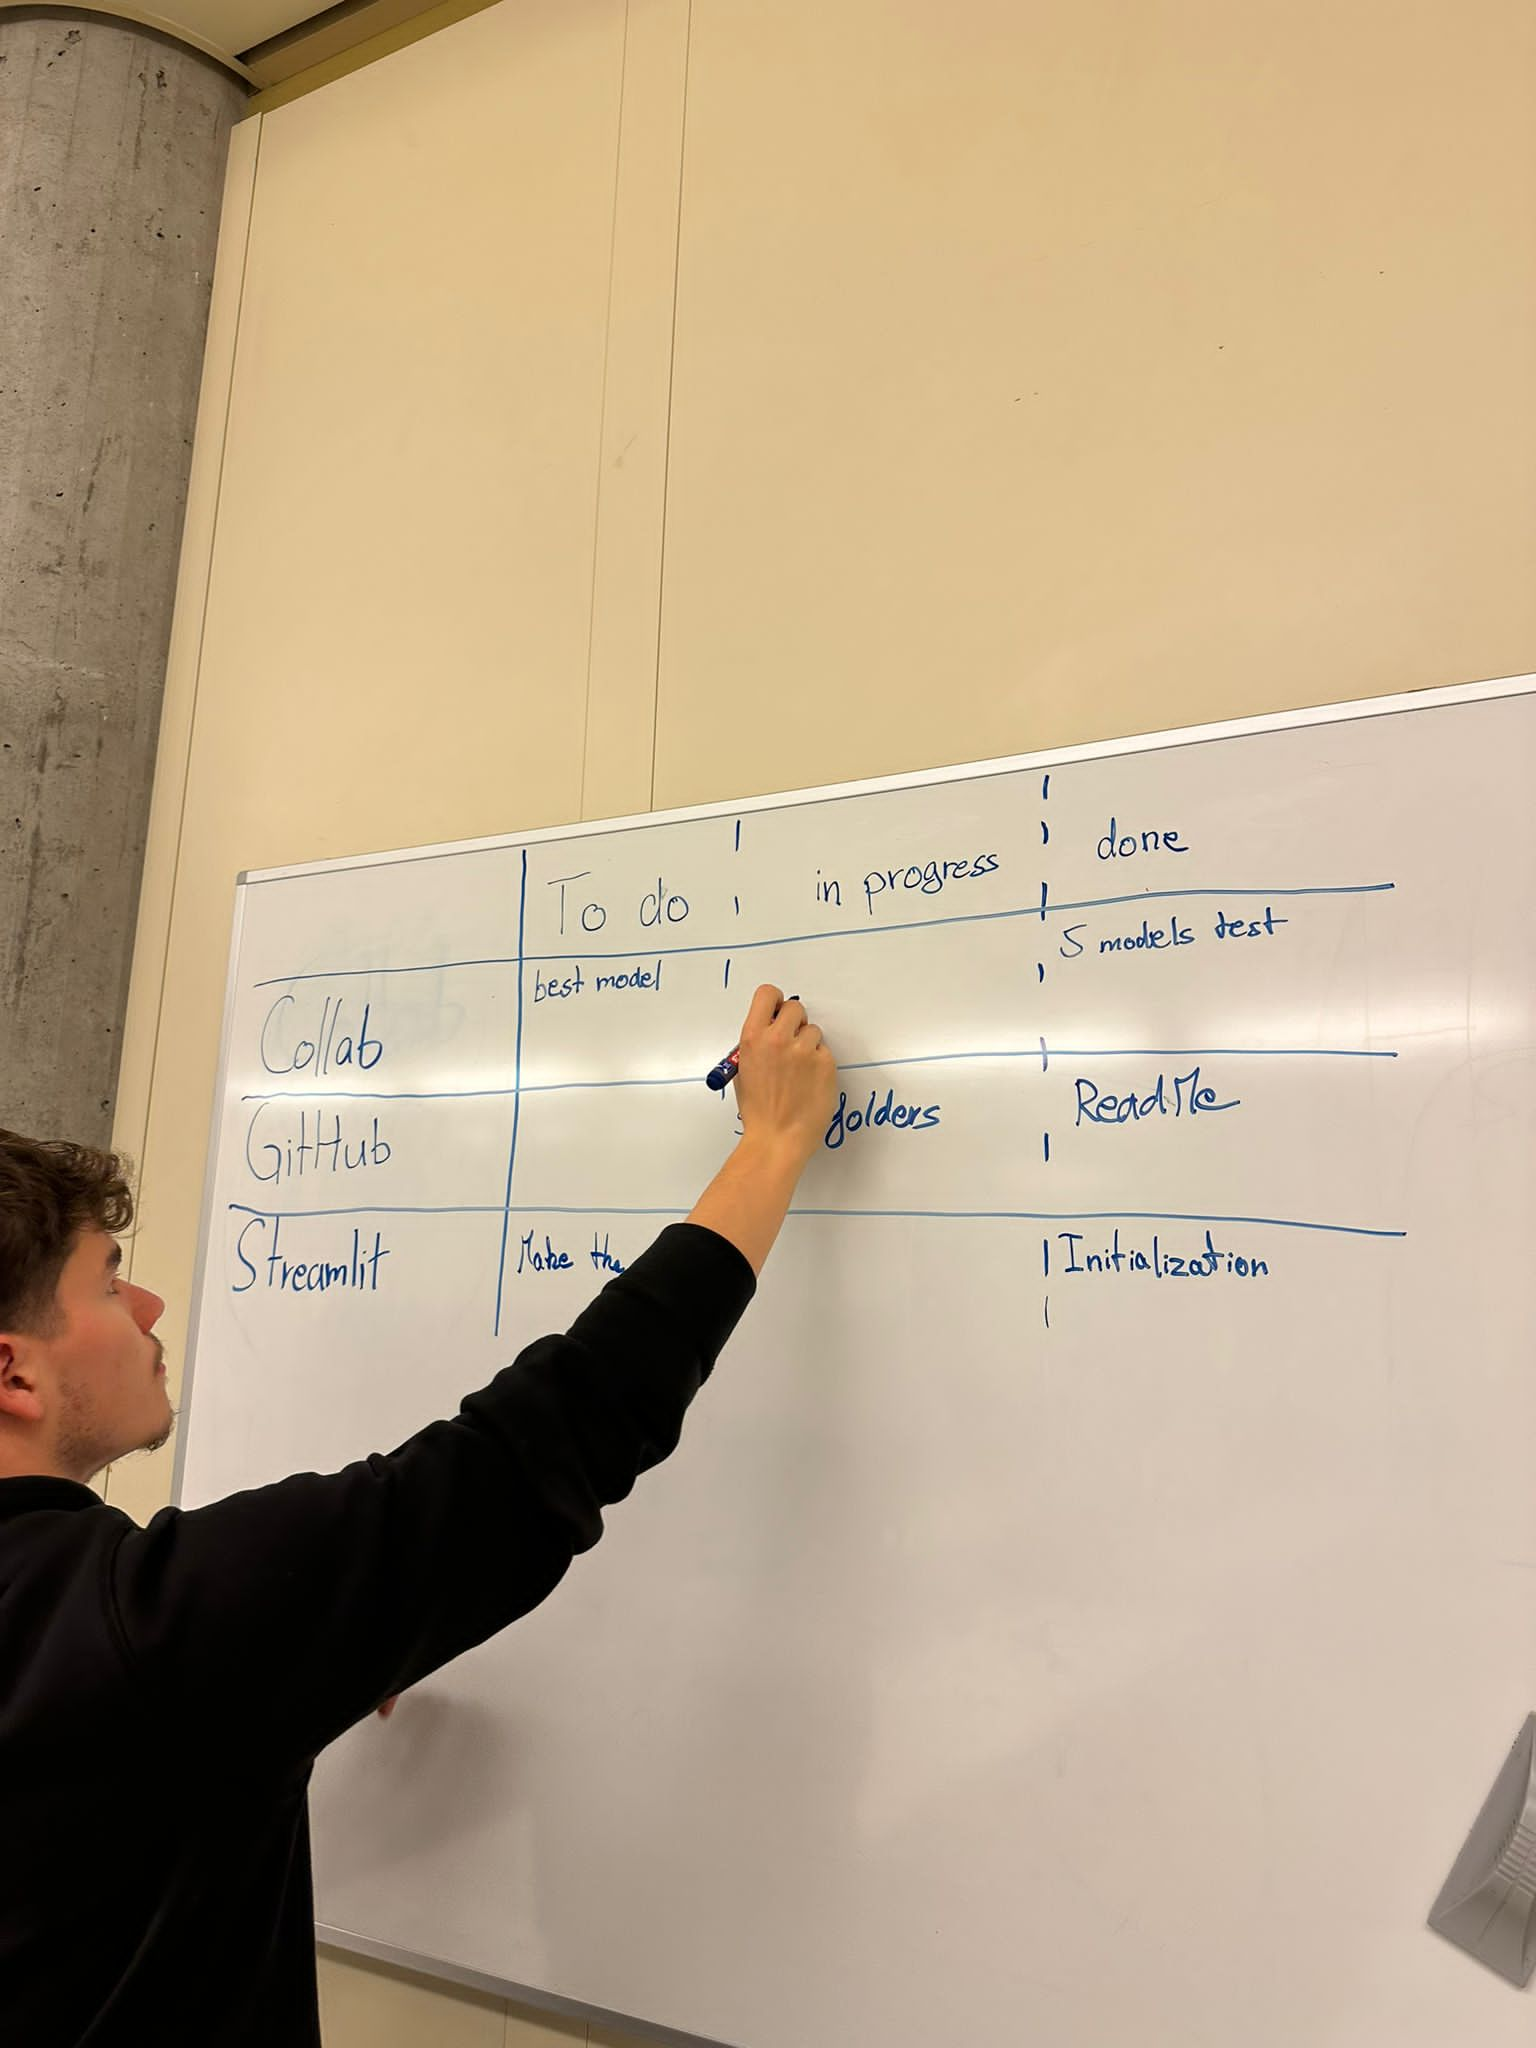 To do in progress done
best model 5 models test
Collab
GitHub folders ReadMe
Streamlit Make the Initialization